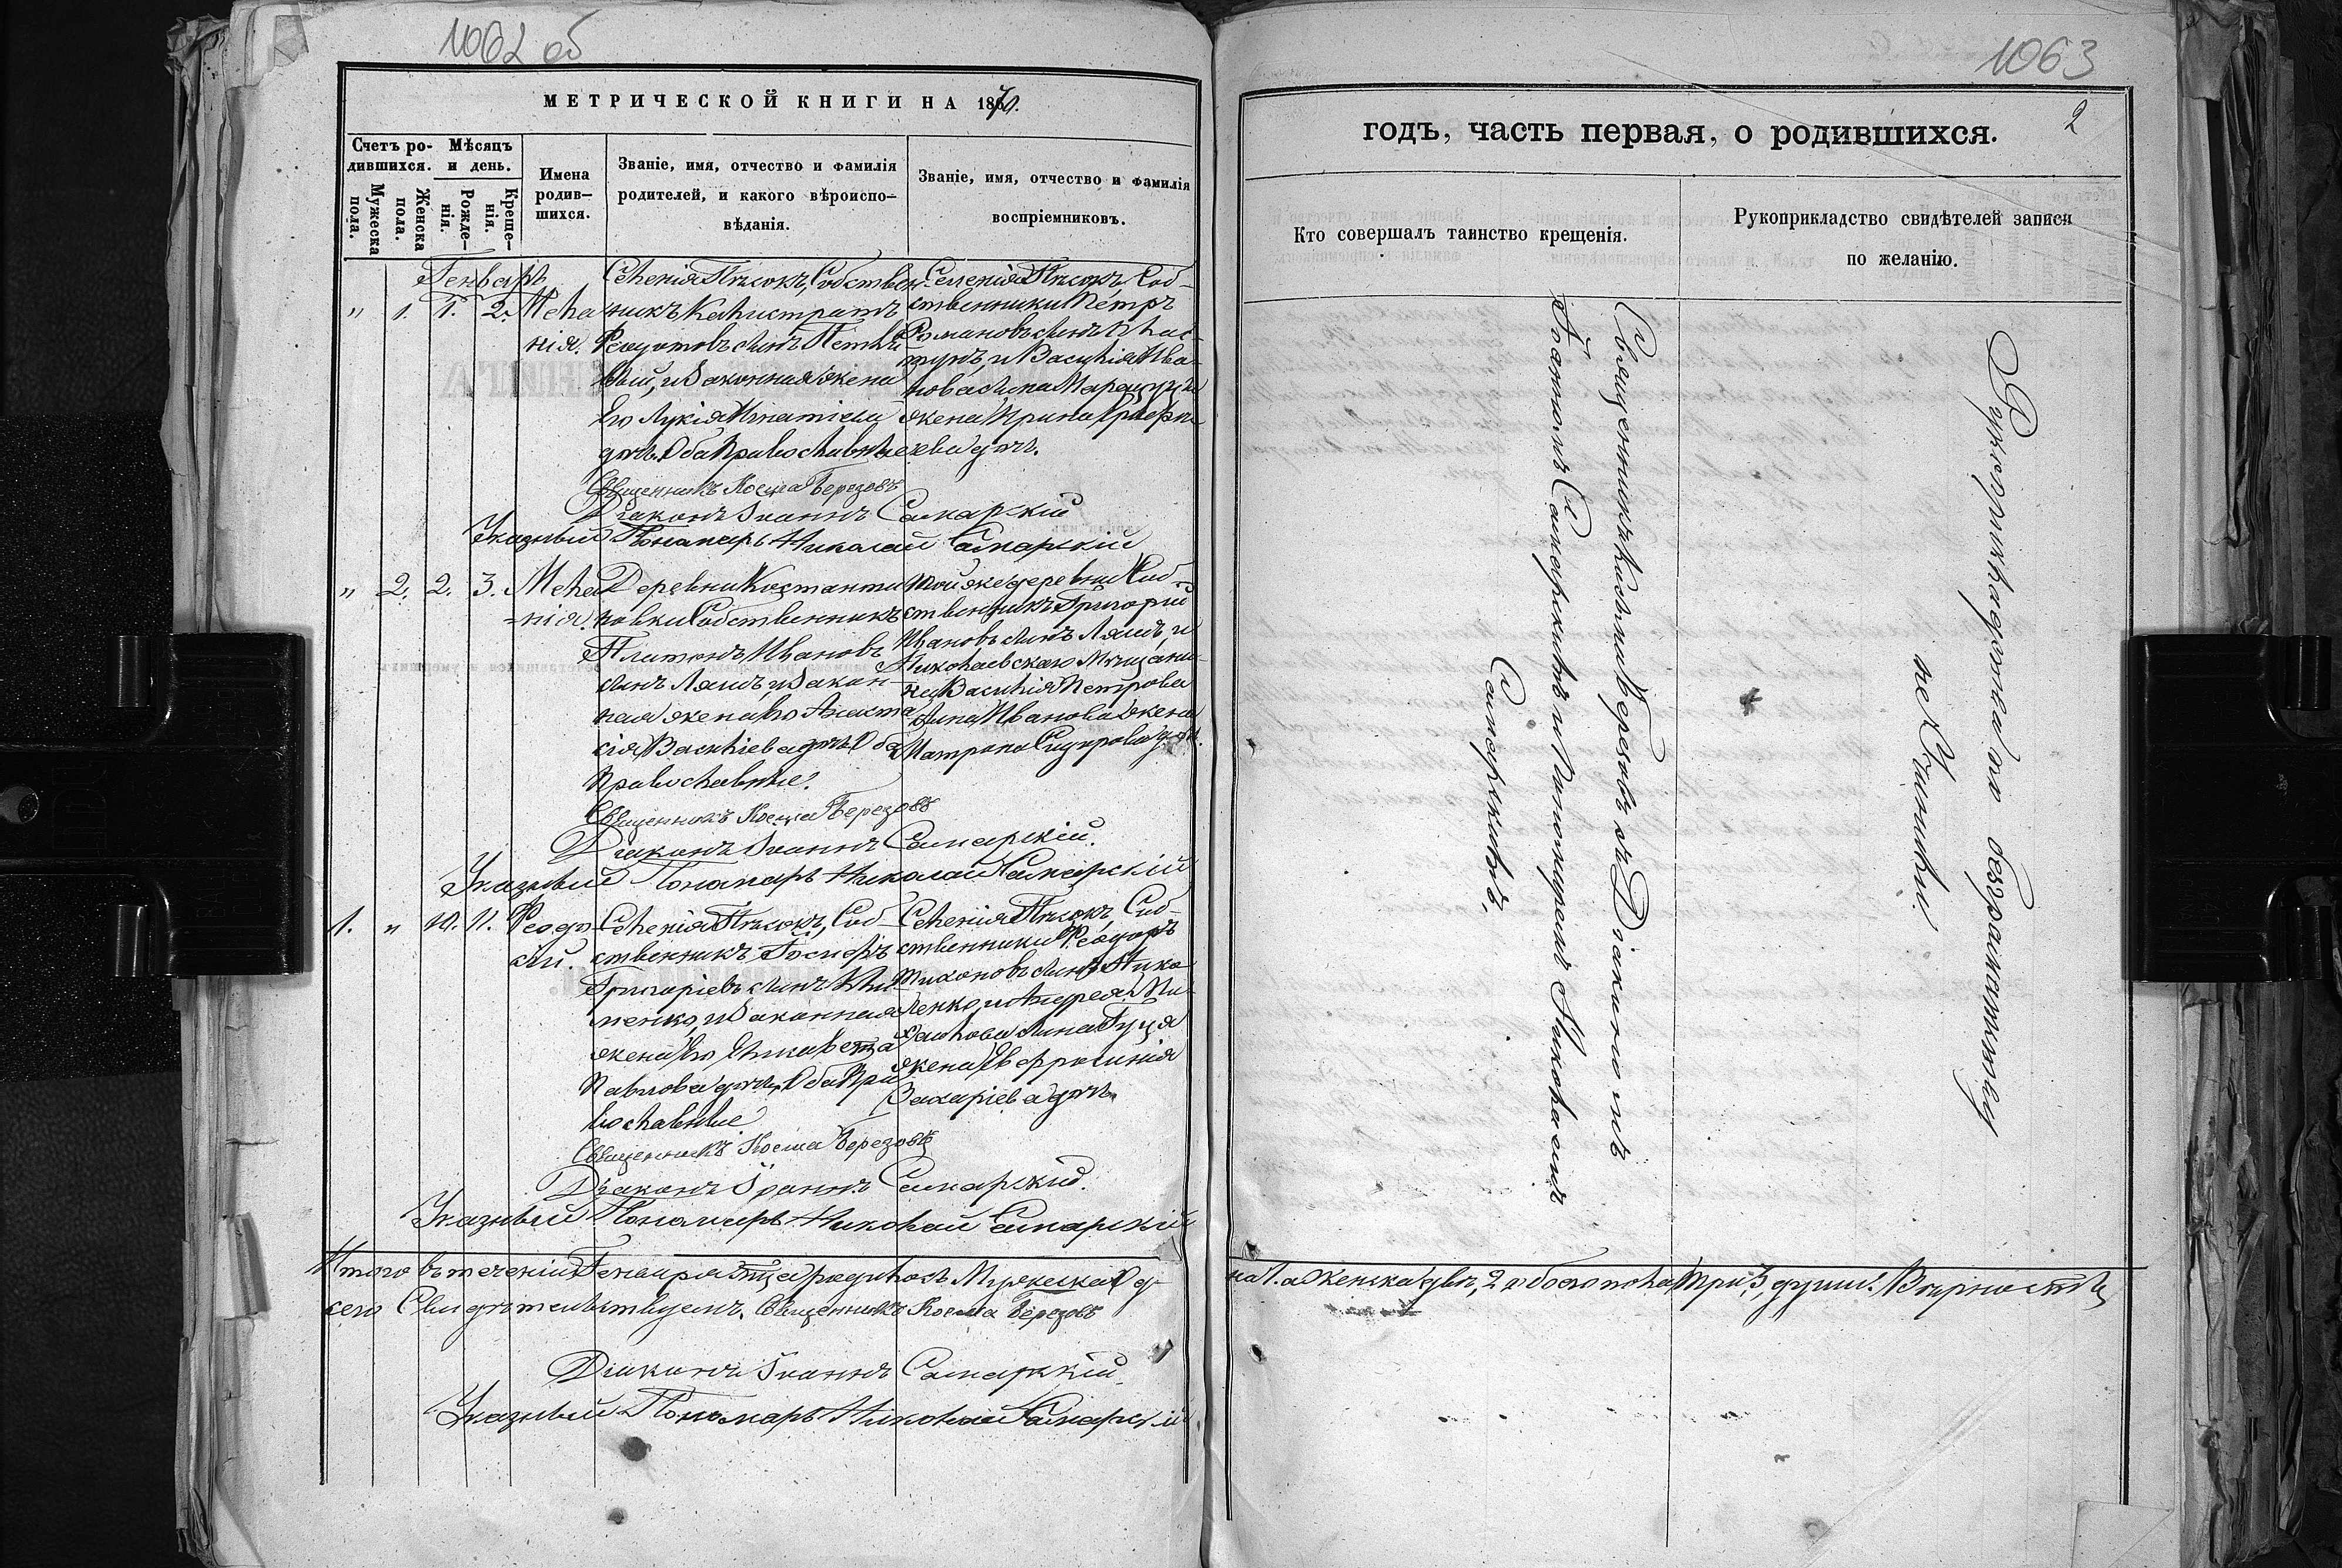 1062 об
МЕТРИЧЕСКОЙ КНИГИ НА 1870.
Счетъ ро-
дившихся.
Мѣсяцъ
и день.
Мужеска
пола.
Женска
пола.
Рожде-
нія.
Креще-
нія.
Имена
родив-
шихся.
Званіе, имя, отчество и фамилія
родителей, и какого вѣроиспо-
вѣданія.
Званіе, имя, отчество и фамилія
воспріемниковъ.
Генварь
" 1. 1. 2. Мела
нія.
Селенія Пѣсокъ, Собствен-
никъ Калистратъ
Феодотовъ сынъ
вый, и Законная жена
его Лукія Игнатіева
дочь. Оба Православные
Селенія Пѣсокъ, Соб-
ственники Петръ
Романовъ сынъ
и Василія Ива-
нова сына
жена Ирина
ева дочь.
Священникъ Косма Березовъ
Діаконъ Іоаннъ Самарскій
Указный Пономарь Николай Самарскій
" 2. 2. 3. Мела
-нія.
Деревни Костанти
новки Собственникъ
Платонъ Ивановъ
сынъ Ляшъ, и Закон-
ная жена его Анаста
сія Васильева дочь. Оба
Православные.
Той же деревни Соб-
ственникъ Григорій
Ивановъ сынъ Ляшъ, и
Николаевскаго Мѣщани-
на Василія Петрова
сына Иванова жена
Матрона Сидорова дочь.
Священникъ Косма Березовъ
Діаконъ Іоаннъ Самарскій.
Указный Пономарь Николай Самарскій
1. " 10. 11. Феодо
сій.
Селенія Пѣсокъ, Соб-
ственникъ Іосифъ
Григоріевъ сынъ Кли-
менко, и Законная
жена его, Елисавета
Павлова дочь, Оба Пра
вославные
Селенія Пѣсокъ, Соб-
ственники Феодоръ
Тихоновъ сынъ Нико
ленко, и Андрея Ми-
хайлова сына Гуця
жена Евфросинія
Захаріева дочь.
Священникъ Косма Березовъ
Діаконъ Іоаннъ Самарскій.
Указный Пономарь Николай Самарскій
Итого въ теченіи Генваря м-ца родилось Мужеска Од-
сего Свидѣтельствуемъ. Священникъ Косма Березовъ
Діаконъ Іоаннъ Самарскій.
Указный Пономарь Николай Самарскій
1063
2
годъ, часть первая, о родившихся.
Кто совершалъ таинство крещенія.
Рукоприкладство свидѣтелей записи
по желанію.
Священникъ Косьма Березовъ съ Діакономъ
Іоанномъ Самарскимъ и Пономаремъ Николаемъ
Самарскимъ,
Рукоприкладства по безграмотству
не учинили.
на 1. а Женска двѣ, 2 а обоего пола Три 3, души. Вѣрность